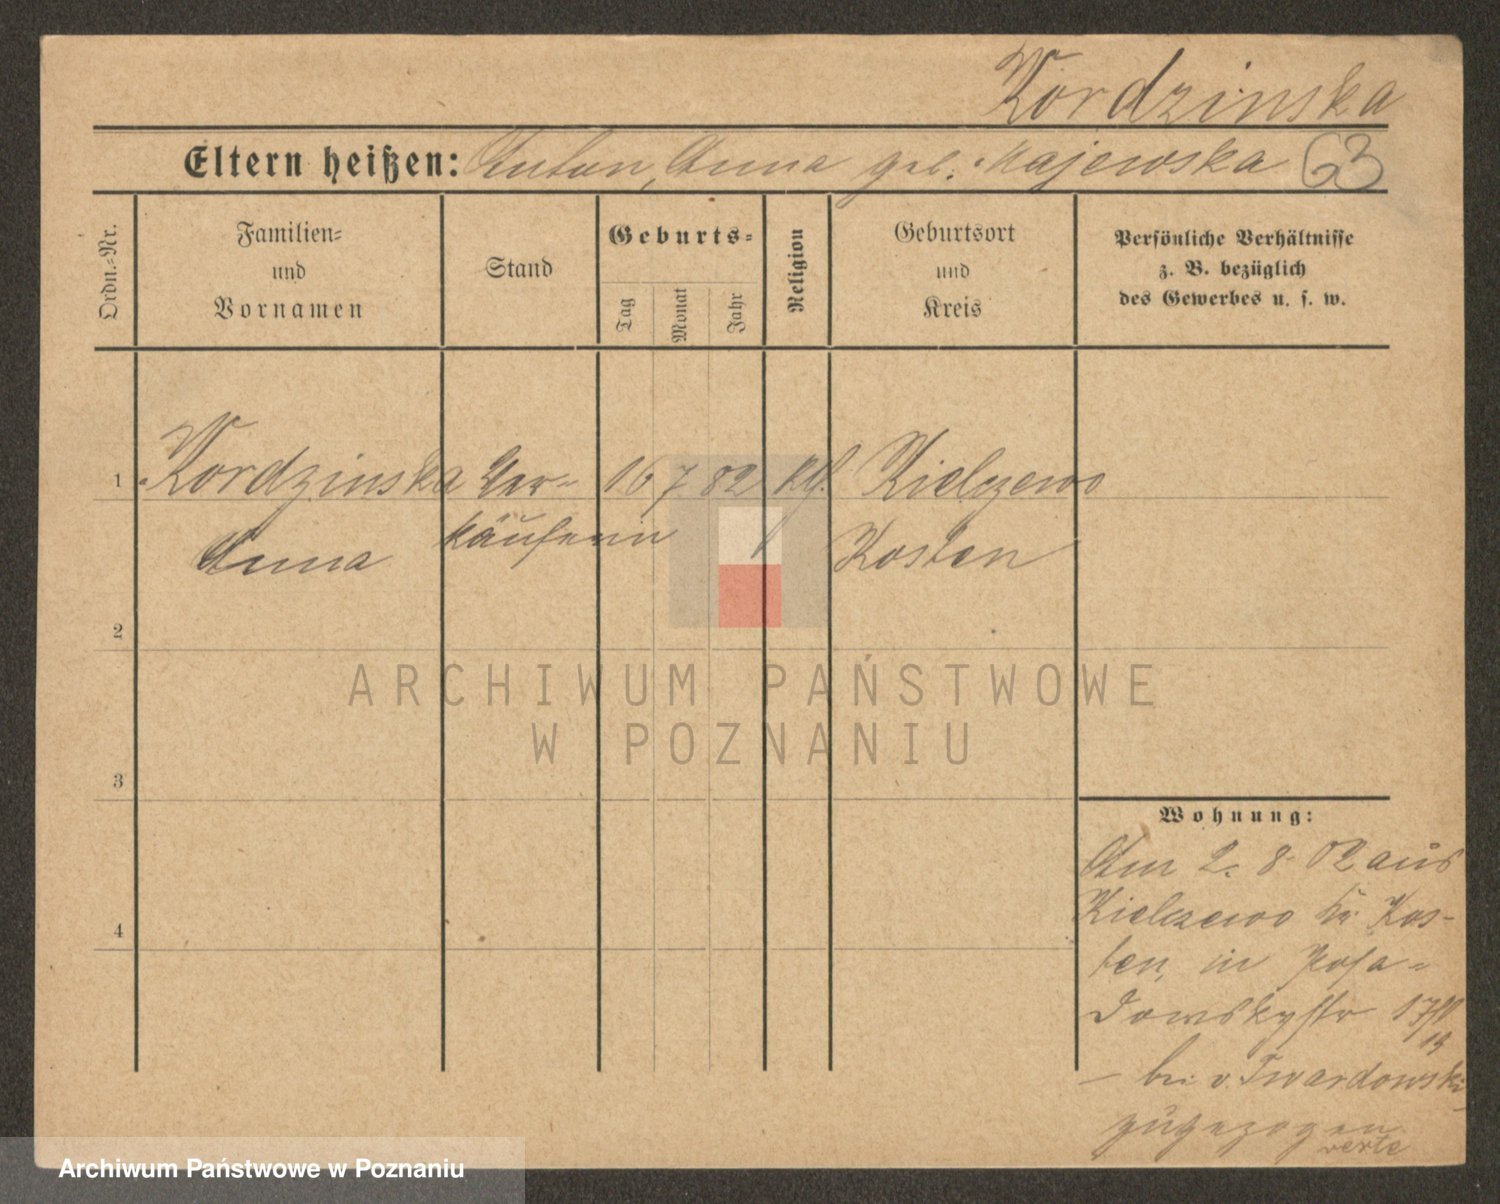 Kordzinska
Eltern heißen: Anton, Anna geb. Majewska 63
Ordn.-Nr.
Familien-
und
Vornamen
Stand
Geburts-
Tag
Monat
Jahr
Religion
Geburtsort
und
Kreis
Persönliche Verhältnisse
z. B. bezüglich
des Gewerbes u. s. w.
1 Kordzinska Ver- 16 7 82 kth. Kielczewo
Anna käuferin Kosten
2
ARCHIWUM PAŃSTWOWE
W POZNANIU
3
Wohnung:
Am 2. 8. 02 aus
Kielczewo Kr. Kos-
4
ten, in Posa-
dowskystr 17
— bei v. Twardowski
zugezogen
verte
Archiwum Państwowe w Poznaniu